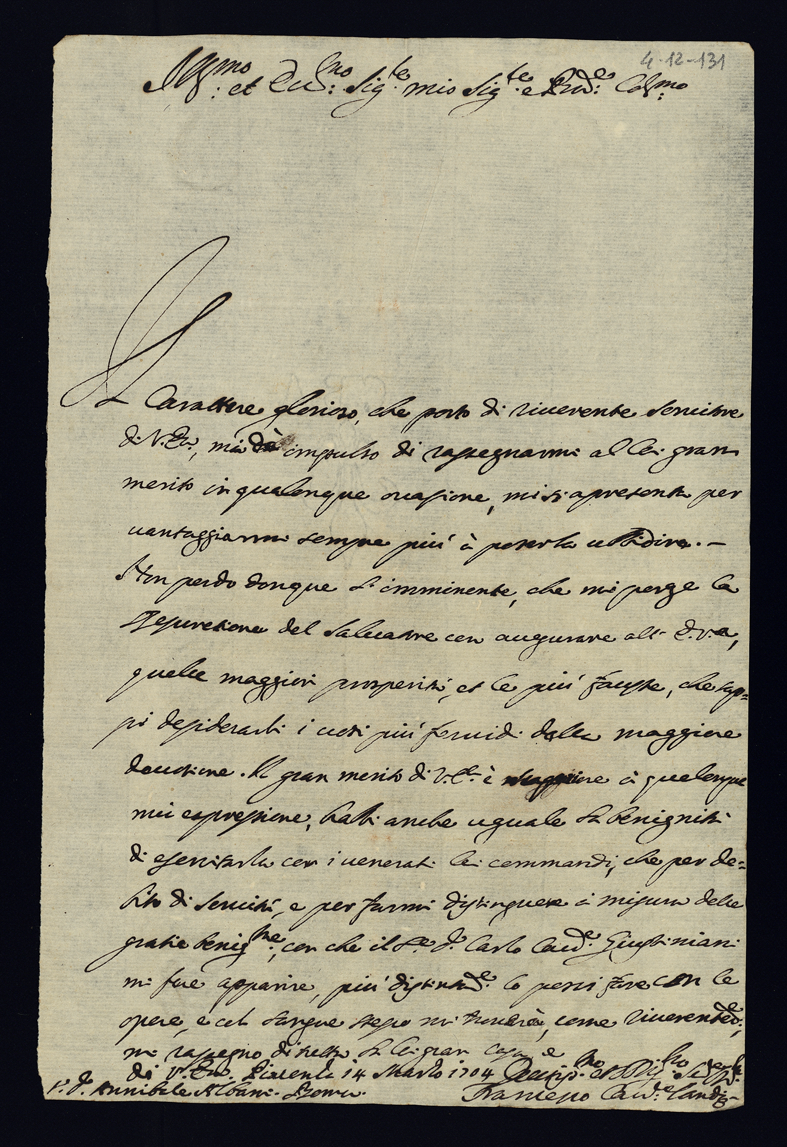 4-12-131
Ill:mo et Ecc:mo Sig:re mio Sig:re e Pad:e Col:mo
Il Carattere glorioso, che porto di riverente servitore
di V. Ecc., mi dà impulso di rassegnarmi al lei gran
merito in qualonque occasione, mi si apresenta per
vantaggiarmi sempre più à poterla ubbidire. -
Non perdo donque l'imminente, che mi porge la
Resuretione del Salvatore con augurare all' E.V.a,
quelle maggiori prosperità, et le più fauste, che sap=
pi desiderarli i voti più fervidi della maggiore
devotione. Il gran merito di V.E. è maggiore à qualonque
mia espressione, habbi anche uguale la benignità
di esercitarla con i venerati lei commandi, che per de=
bito di servitù, e per farmi distinguere à misura delle
gratie benig:me, con che il Sr. D. Carlo Cav:e Giustiniani
mi fece apparire, più distint:e lo farei con le
opere, e col sangue stesso mi troverà, come riverente:
mi rassegno di tutta la lei gran casa e
di V. Ecc. Piacenza 14 Marzo 1704
S. D. Annibale Albani. Roma.
Francesco Cav:e Landi